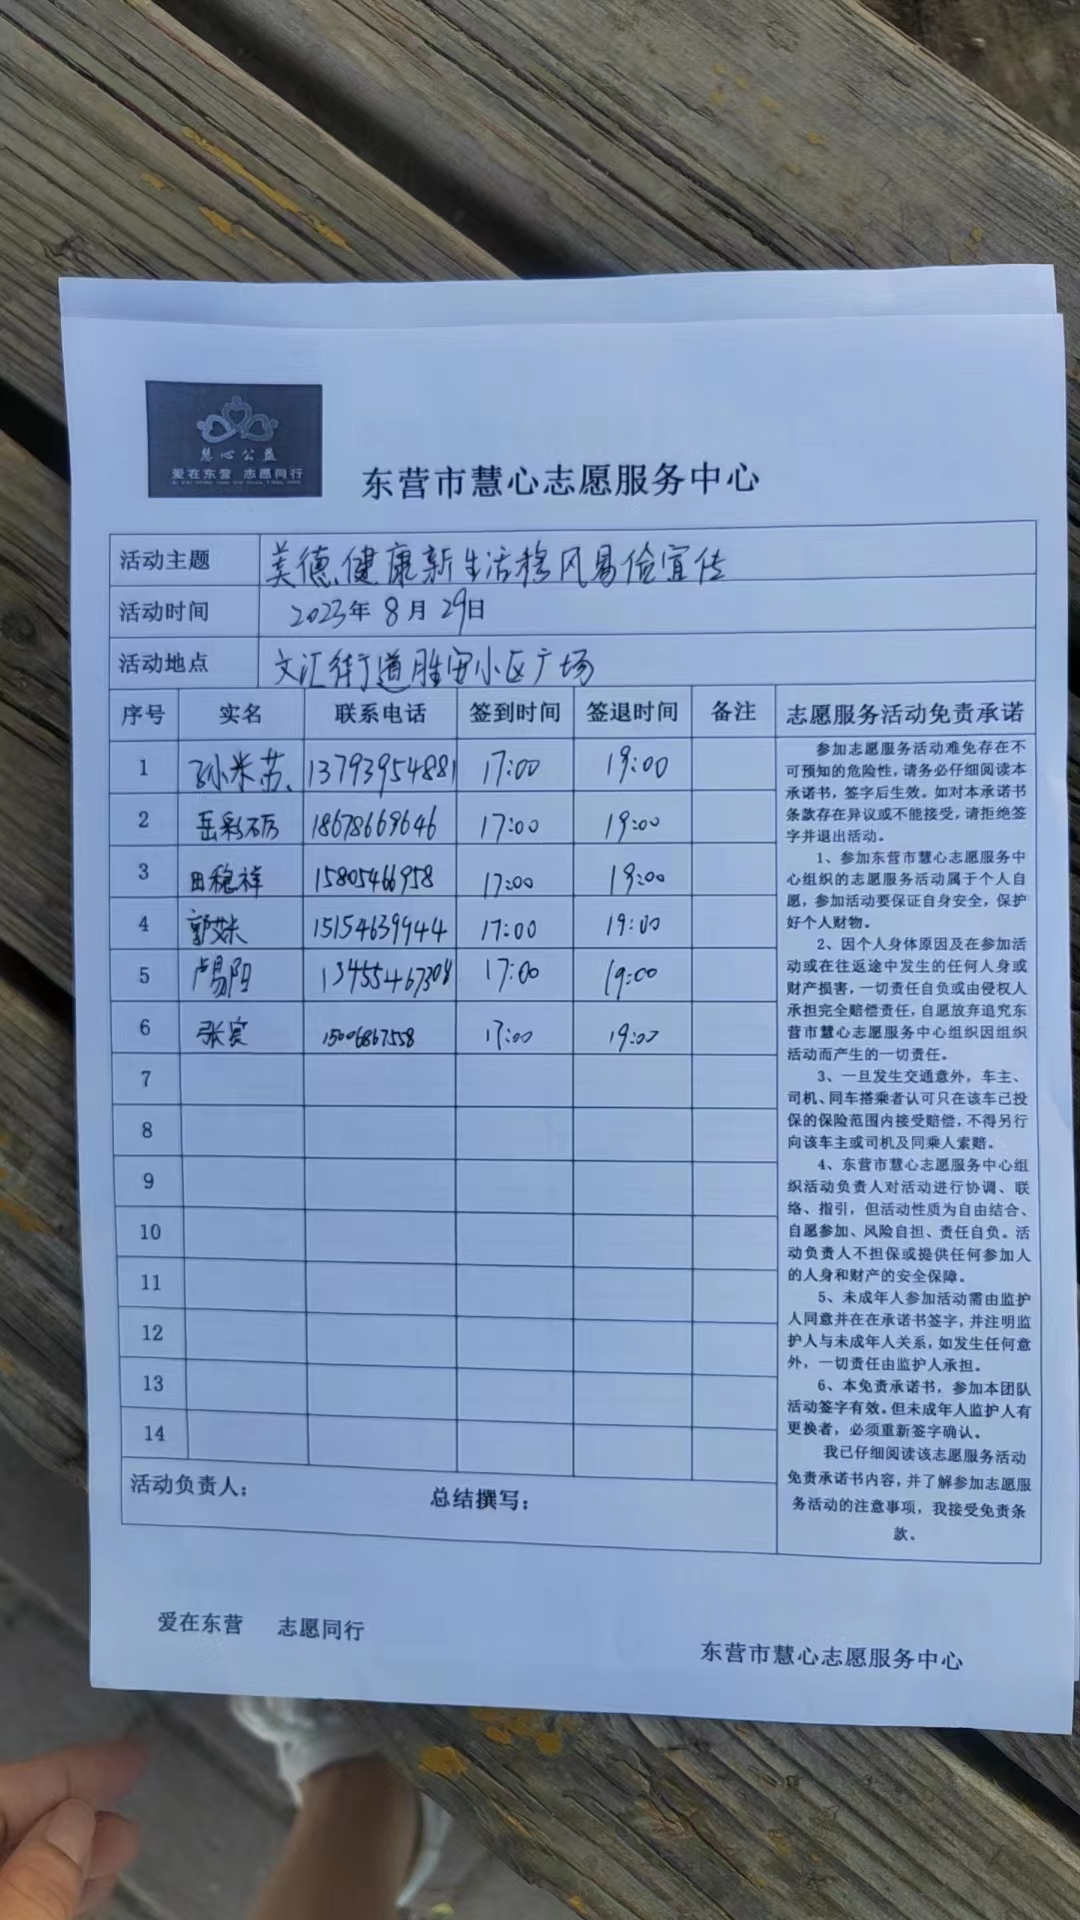 慧心公益
爱在东营 志愿同行
东营市慧心志愿服务中心
活动主题 美德健康新生活移风易俗宣传
活动时间 2023年8月29日
活动地点 文汇街道胜安小区广场
序号 实名 联系电话 签到时间 签退时间 备注 志愿服务活动免责承诺
1 孙米芳 13793954881 17:00 19:00
2 岳彩历 18678669646 17:00 19:00
3 田穗祥 15805466958 17:00 19:00
4 郭艾米 15154639944 17:00 19:00
5 卢易阳 13455467308 17:00 19:00
6 张宾 15006867558 17:00 19:00
7
8
9
10
11
12
13
14
活动负责人： 总结撰写：
参加志愿服务活动难免存在不
可预知的危险性，请务必仔细阅读本
承诺书，签字后生效。如对本承诺书
条款存在异议或不能接受，请拒绝签
字并退出活动。
1、参加东营市慧心志愿服务中
心组织的志愿服务活动属于个人自
愿，参加活动要保证自身安全，保护
好个人财物。
2、因个人身体原因及在参加活
动或在往返途中发生的任何人身或
财产损害，一切责任自负或由侵权人
承担完全赔偿责任，自愿放弃追究东
营市慧心志愿服务中心组织因组织
活动而产生的一切责任。
3、一旦发生交通意外，车主、
司机、同车搭乘者认可只在该车已投
保的保险范围内接受赔偿，不得另行
向该车主或司机及同乘人索赔。
4、东营市慧心志愿服务中心组
织活动负责人对活动进行协调、联
络、指引，但活动性质为自由结合、
自愿参加、风险自担、责任自负。活
动负责人不担保或提供任何参加人
的人身和财产的安全保障。
5、未成年人参加活动需由监护
人同意并在在承诺书签字，并注明监
护人与未成年人关系，如发生任何意
外，一切责任由监护人承担。
6、本免责承诺书，参加本团队
活动签字有效。但未成年人监护人有
更换者，必须重新签字确认。
我已仔细阅读该志愿服务活动
免责承诺书内容，并了解参加志愿服
务活动的注意事项，我接受免责条
款。
爱在东营 志愿同行
东营市慧心志愿服务中心